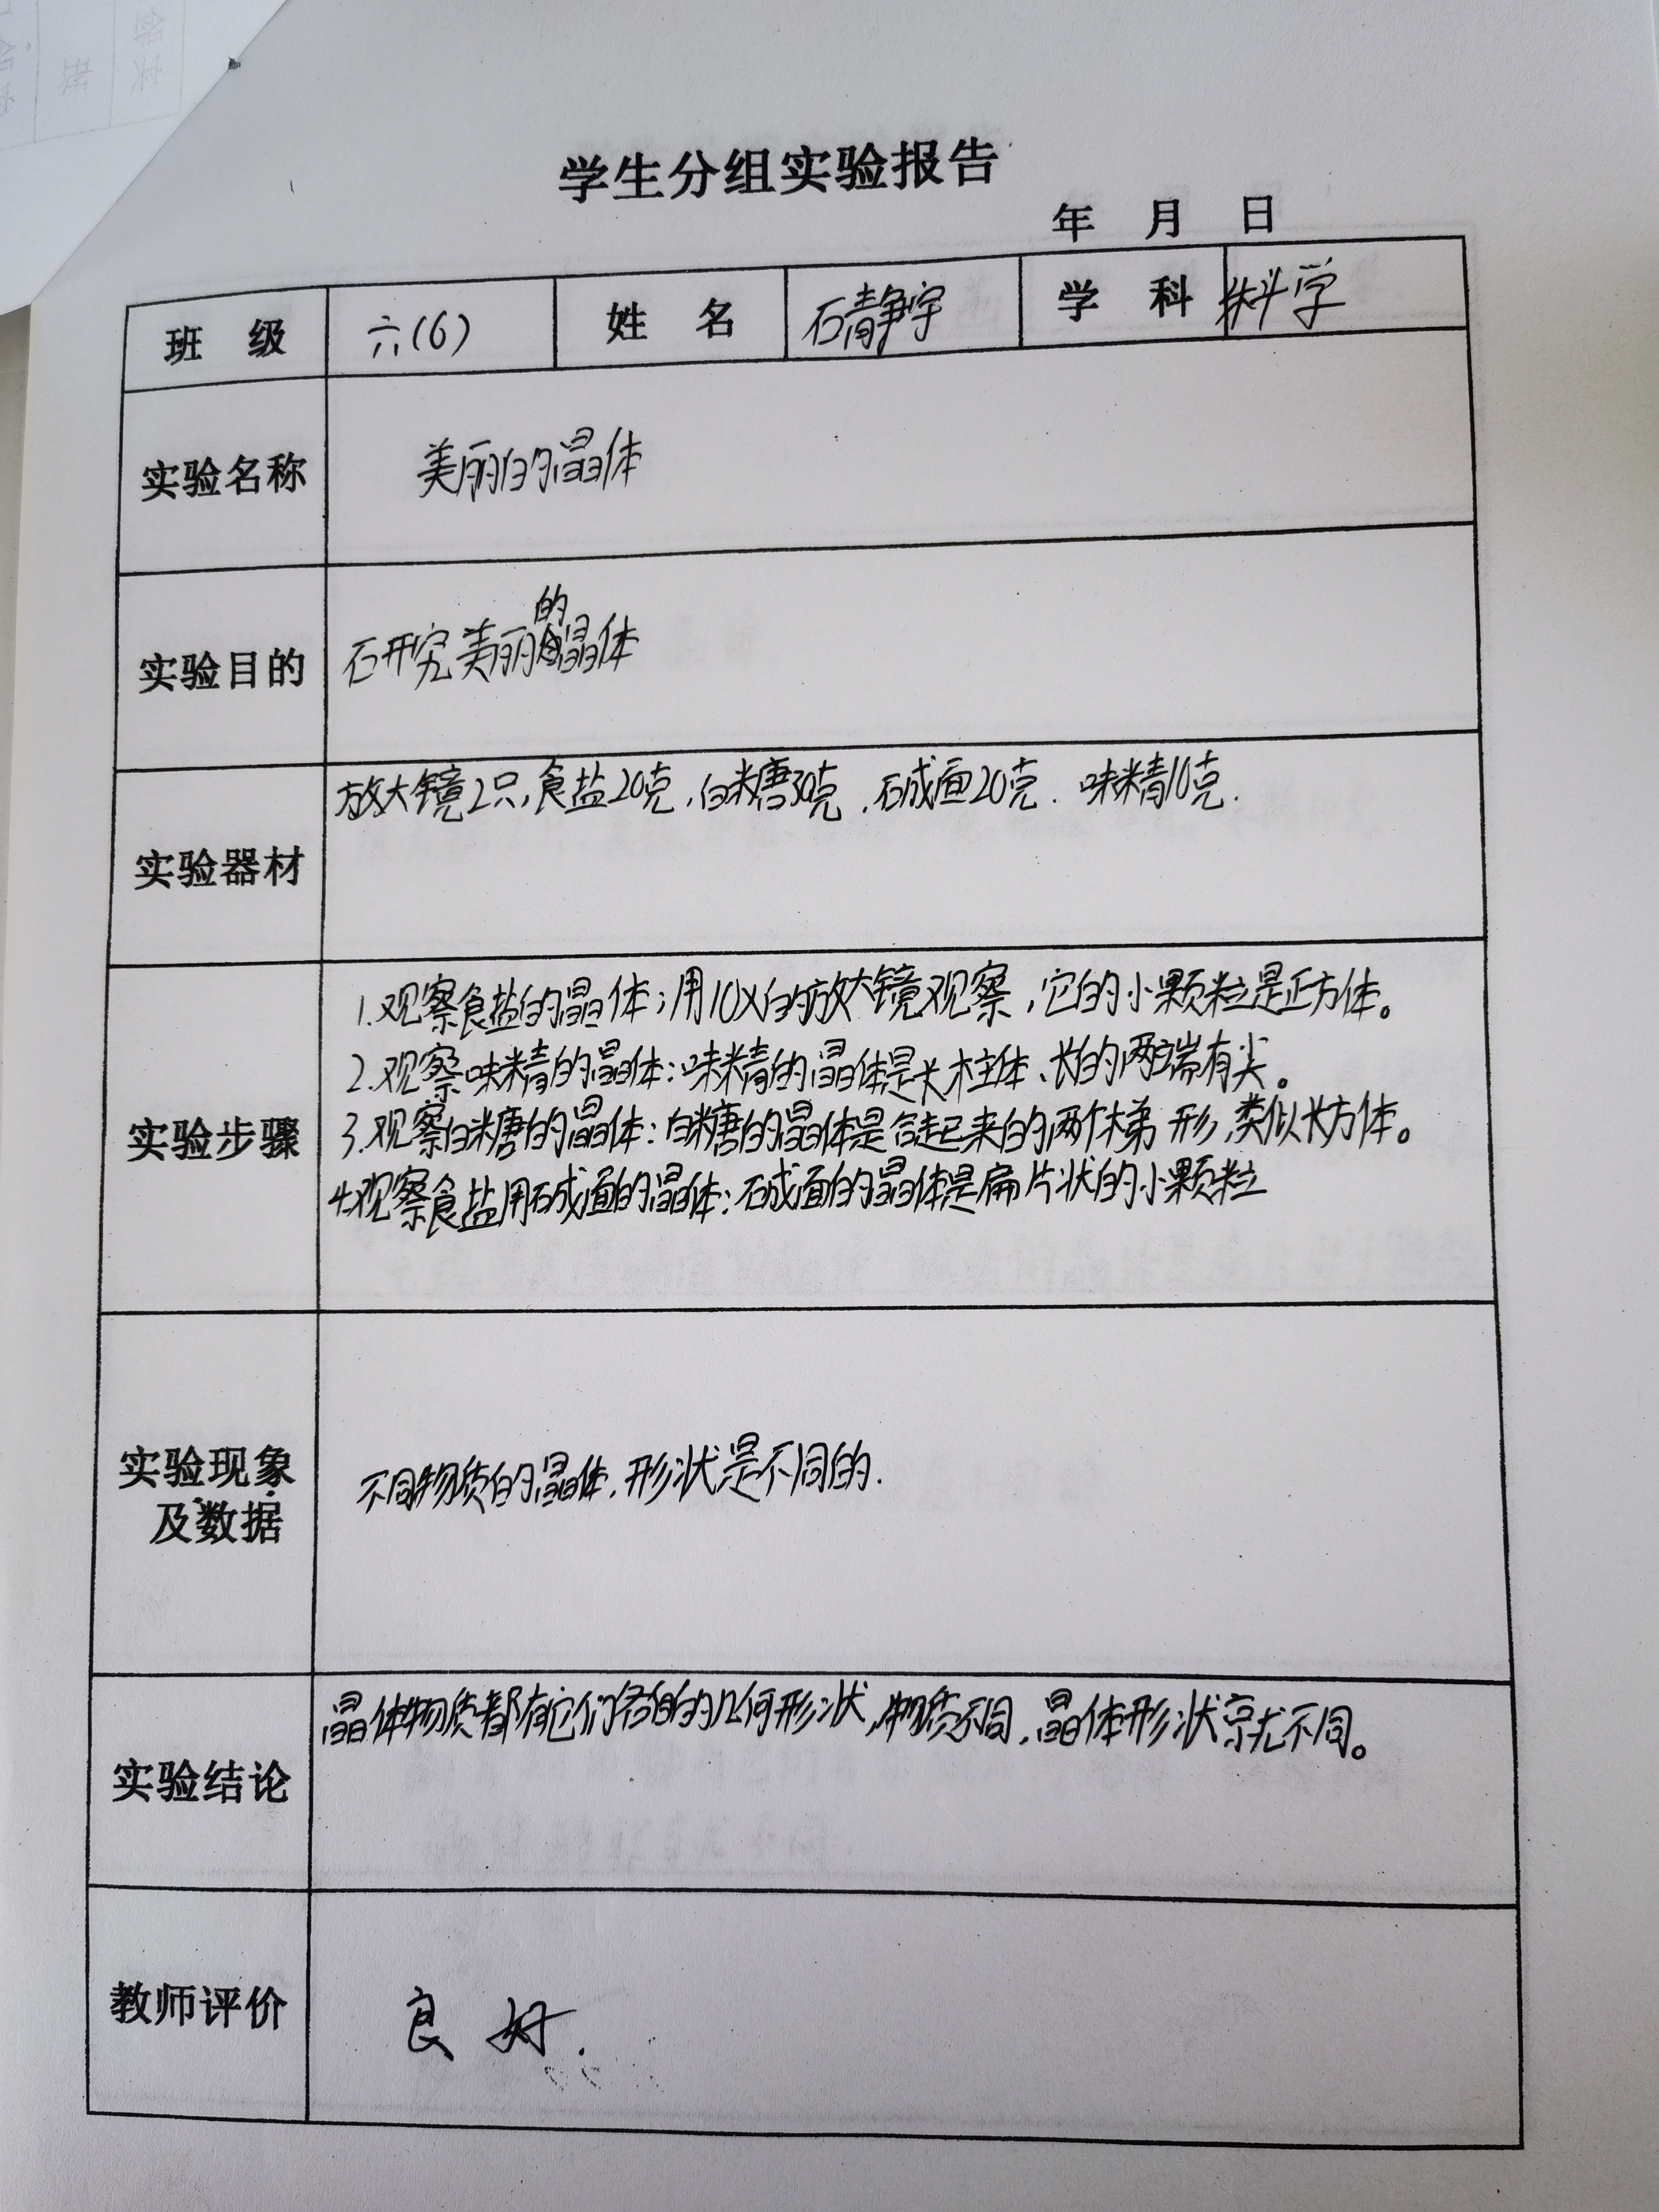 学生分组实验报告
年 月 日
班 级 六(6) 姓 名 石静宇 学 科 科学
实验名称 美丽的晶体
实验目的 研究美丽的晶体
实验器材 放大镜2只,食盐20克,白糖30克,碱面20克.味精10克.
实验步骤
1.观察食盐的晶体;用10X的放大镜观察,它的小颗粒是正方体。
2.观察味精的晶体:味精的晶体是长柱体、长的两端有尖。
3.观察白糖的晶体:白糖的晶体是合起来的两个梯形,类似长方体。
4.观察食盐用碱面的晶体:碱面的晶体是扁片状的小颗粒
实验现象
及数据
不同物质的晶体,形状是不同的.
实验结论 晶体物质都有它们各自的几何形状,物质不同,晶体形状就不同。
教师评价 良好.